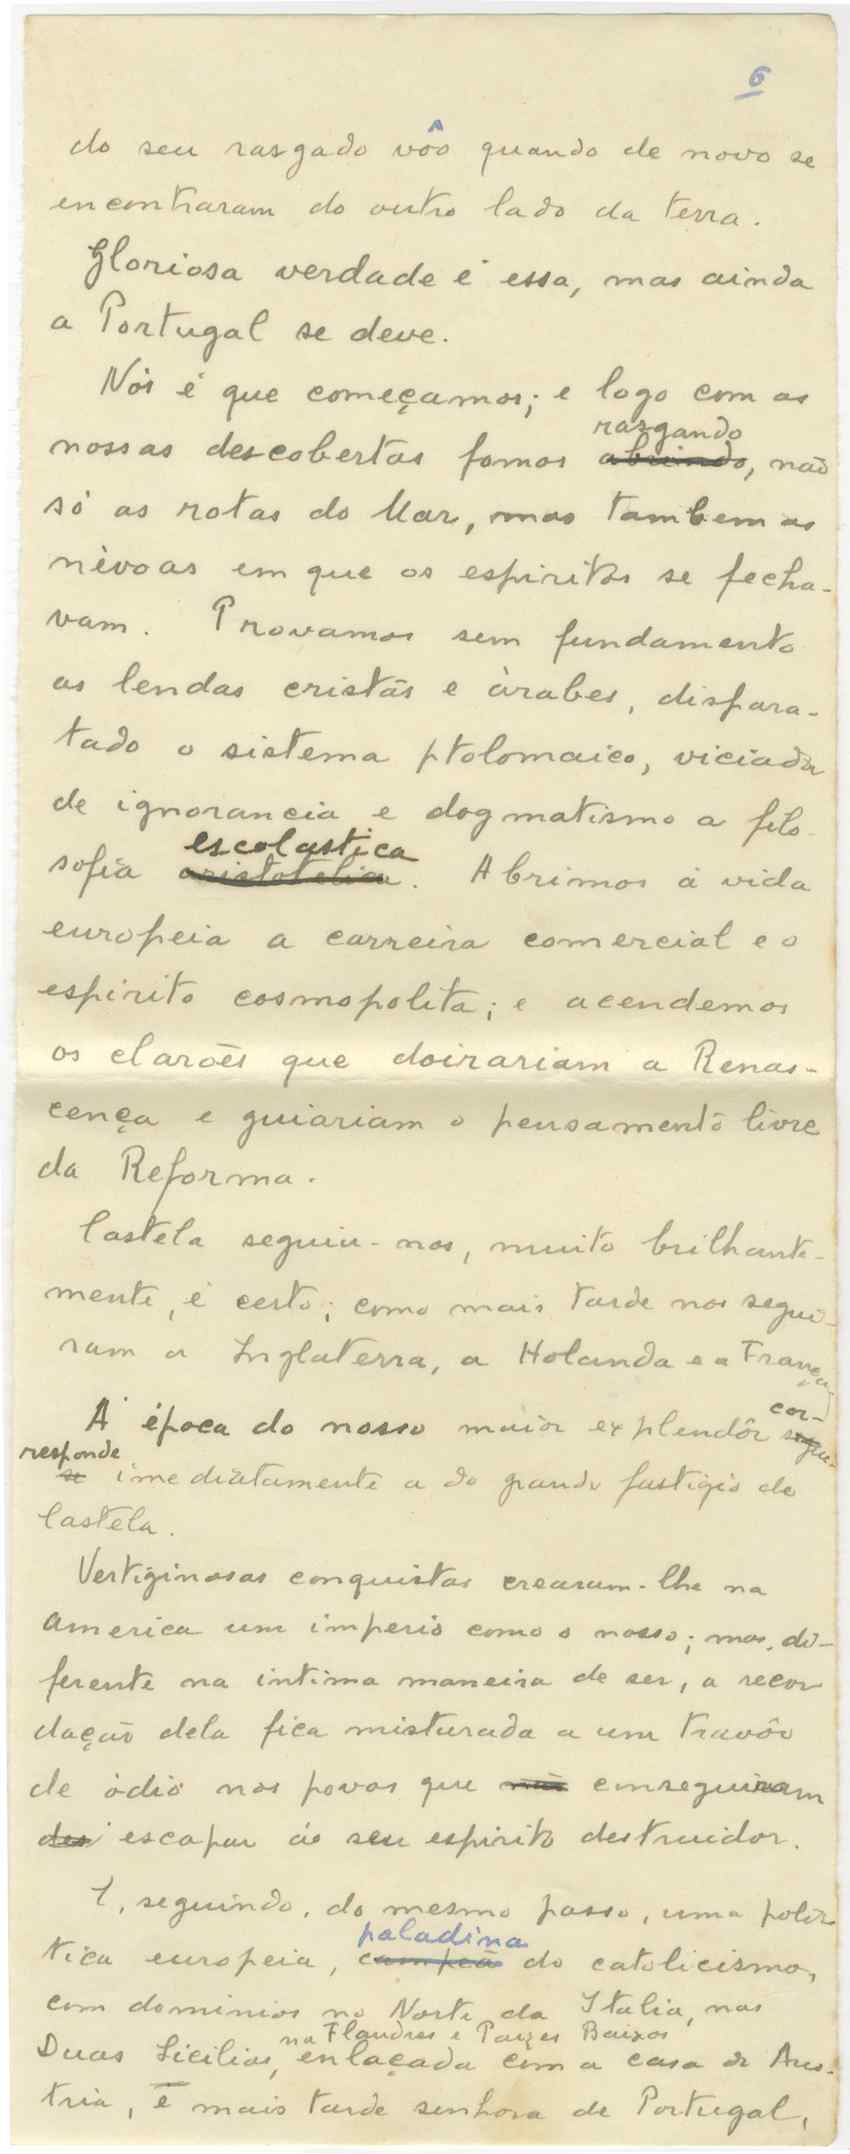 6
do seu rasgado vôo quando de novo se
encontraram do outro lado da terra.
Gloriosa verdade é essa, mas ainda
a Portugal se deve.
Nós é que começamos; e logo com as
rasgando
nossas descobertas fomos abrindo, não
só as rotas do Mar, mas tambem as
névoas em que os espiritos se fecha-
vam. Provamos sem fundamento
as lendas cristãs e árabes, dispara-
tado o sistema ptolomaico, viciada
de ignorancia e dogmatismo a filo-
escolastica
sofia aristotelica. Abrimos á vida
europeia a carreira comercial e o
espirito cosmopolita; e acendemos
os clarões que doirariam a Renas-
cença e guiariam o pensamento livre
da Reforma.
Castela seguiu-nos, muito brilhante-
mente, é certo; como mais tarde nos segui-
ram a Inglaterra, a Holanda e a França.
cor-
A época do nosso maior explendôr segue-
responde
se imediátamente a do grande fastigio de
Castela.
Vertiginosas conquistas crearam-lhe na
America um imperio como o nosso; mas, di-
ferente na intima maneira de ser, a recor
dação dela fica misturada a um travôr
de ódio nos povos que não conseguiram
des escapar ao seu espirito destruidor.
E, seguindo, do mesmo passo, uma poli-
paladina
tica europeia, campeão do catolicismo,
com dominios no Norte da Italia, nas
na Flandres e Paizes Baixos
Duas Sicilias, enlaçada com a casa de Aus-
tria, e mais tarde senhora de Portugal,